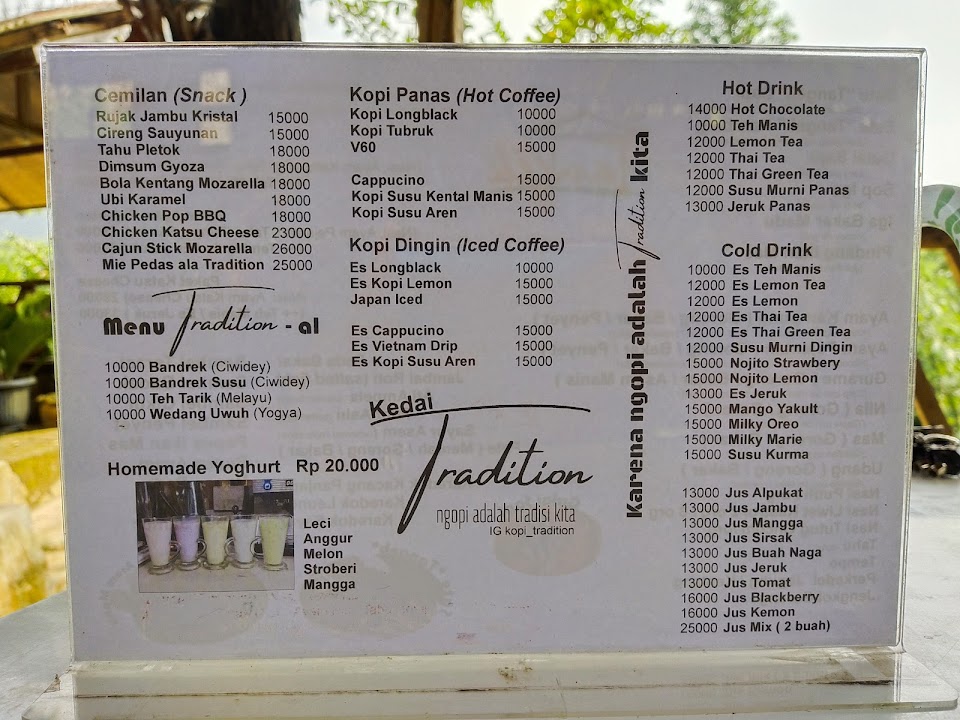 Cemilan (Snack )
Rujak Jambu Kristal 15000
Cireng Sauyunan 15000
Tahu Pletok 18000
Dimsum Gyoza 18000
Bola Kentang Mozarella 18000
Ubi Karamel 18000
Chicken Pop BBQ 18000
Chicken Katsu Cheese 23000
Cajun Stick Mozarella 26000
Mie Pedas ala Tradition 25000
Menu Tradition - al
10000 Bandrek (Ciwidey)
10000 Bandrek Susu (Ciwidey)
10000 Teh Tarik (Melayu)
10000 Wedang Uwuh (Yogya)
Homemade Yoghurt Rp 20.000
Leci
Anggur
Melon
Stroberi
Mangga
Kopi Panas (Hot Coffee)
Kopi Longblack 10000
Kopi Tubruk 10000
V60 15000
Cappucino 15000
Kopi Susu Kental Manis 15000
Kopi Susu Aren 15000
Kopi Dingin (Iced Coffee)
Es Longblack 10000
Es Kopi Lemon 15000
Japan Iced 15000
Es Cappucino 15000
Es Vietnam Drip 15000
Es Kopi Susu Aren 15000
Kedai
Tradition
ngopi adalah tradisi kita
IG kopi_tradition
Karena ngopi adalah Tradition kita
Hot Drink
14000 Hot Chocolate
10000 Teh Manis
12000 Lemon Tea
12000 Thai Tea
12000 Thai Green Tea
12000 Susu Murni Panas
13000 Jeruk Panas
Cold Drink
10000 Es Teh Manis
12000 Es Lemon Tea
12000 Es Lemon
12000 Es Thai Tea
12000 Es Thai Green Tea
12000 Susu Murni Dingin
15000 Nojito Strawbery
15000 Nojito Lemon
13000 Es Jeruk
15000 Mango Yakult
15000 Milky Oreo
15000 Milky Marie
15000 Susu Kurma
13000 Jus Alpukat
13000 Jus Jambu
13000 Jus Mangga
13000 Jus Sirsak
13000 Jus Buah Naga
13000 Jus Jeruk
13000 Jus Tomat
16000 Jus Blackberry
16000 Jus Kemon
25000 Jus Mix ( 2 buah)